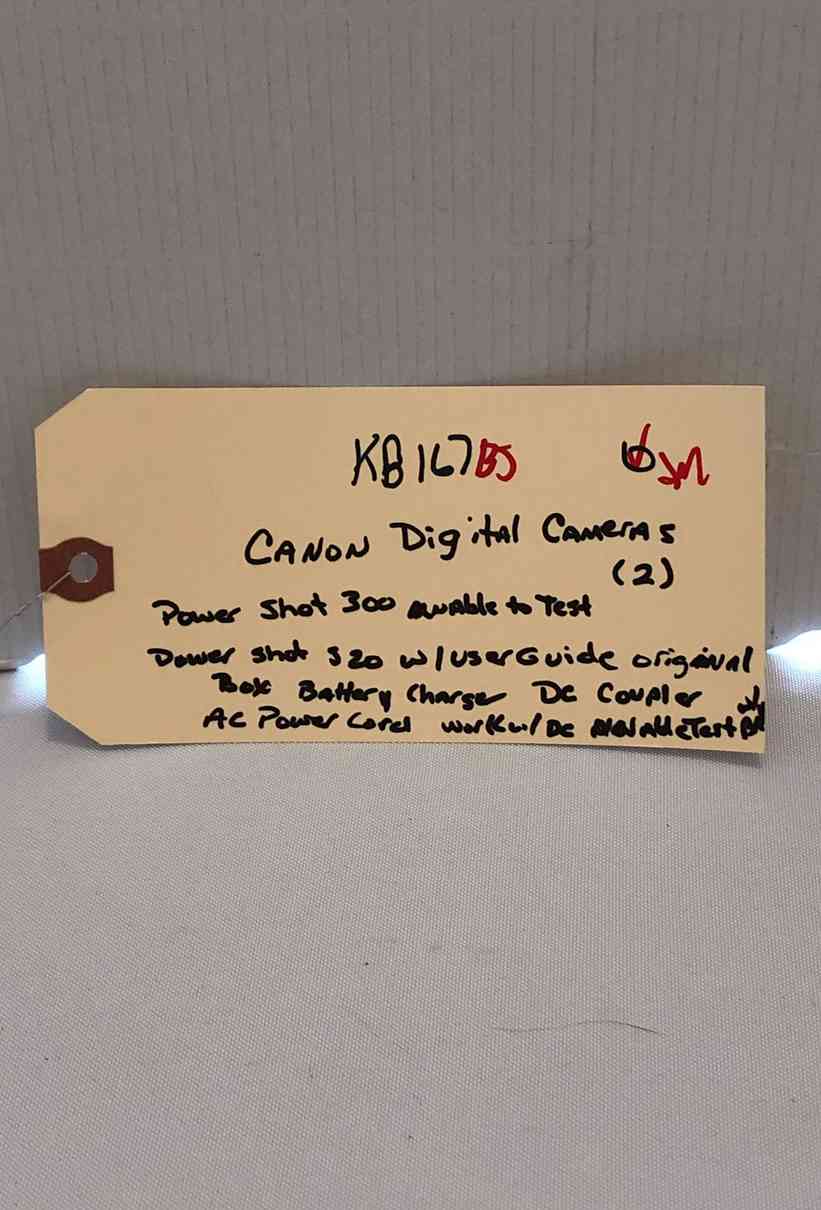 KB167BJ 6 JM
CANON Digital CAMERAS
(2)
Power Shot 300 unable to Test
Power shot S20 w/userGuide original
Box Battery Charger DC Coupler
AC Power Cord work w/ DC Test